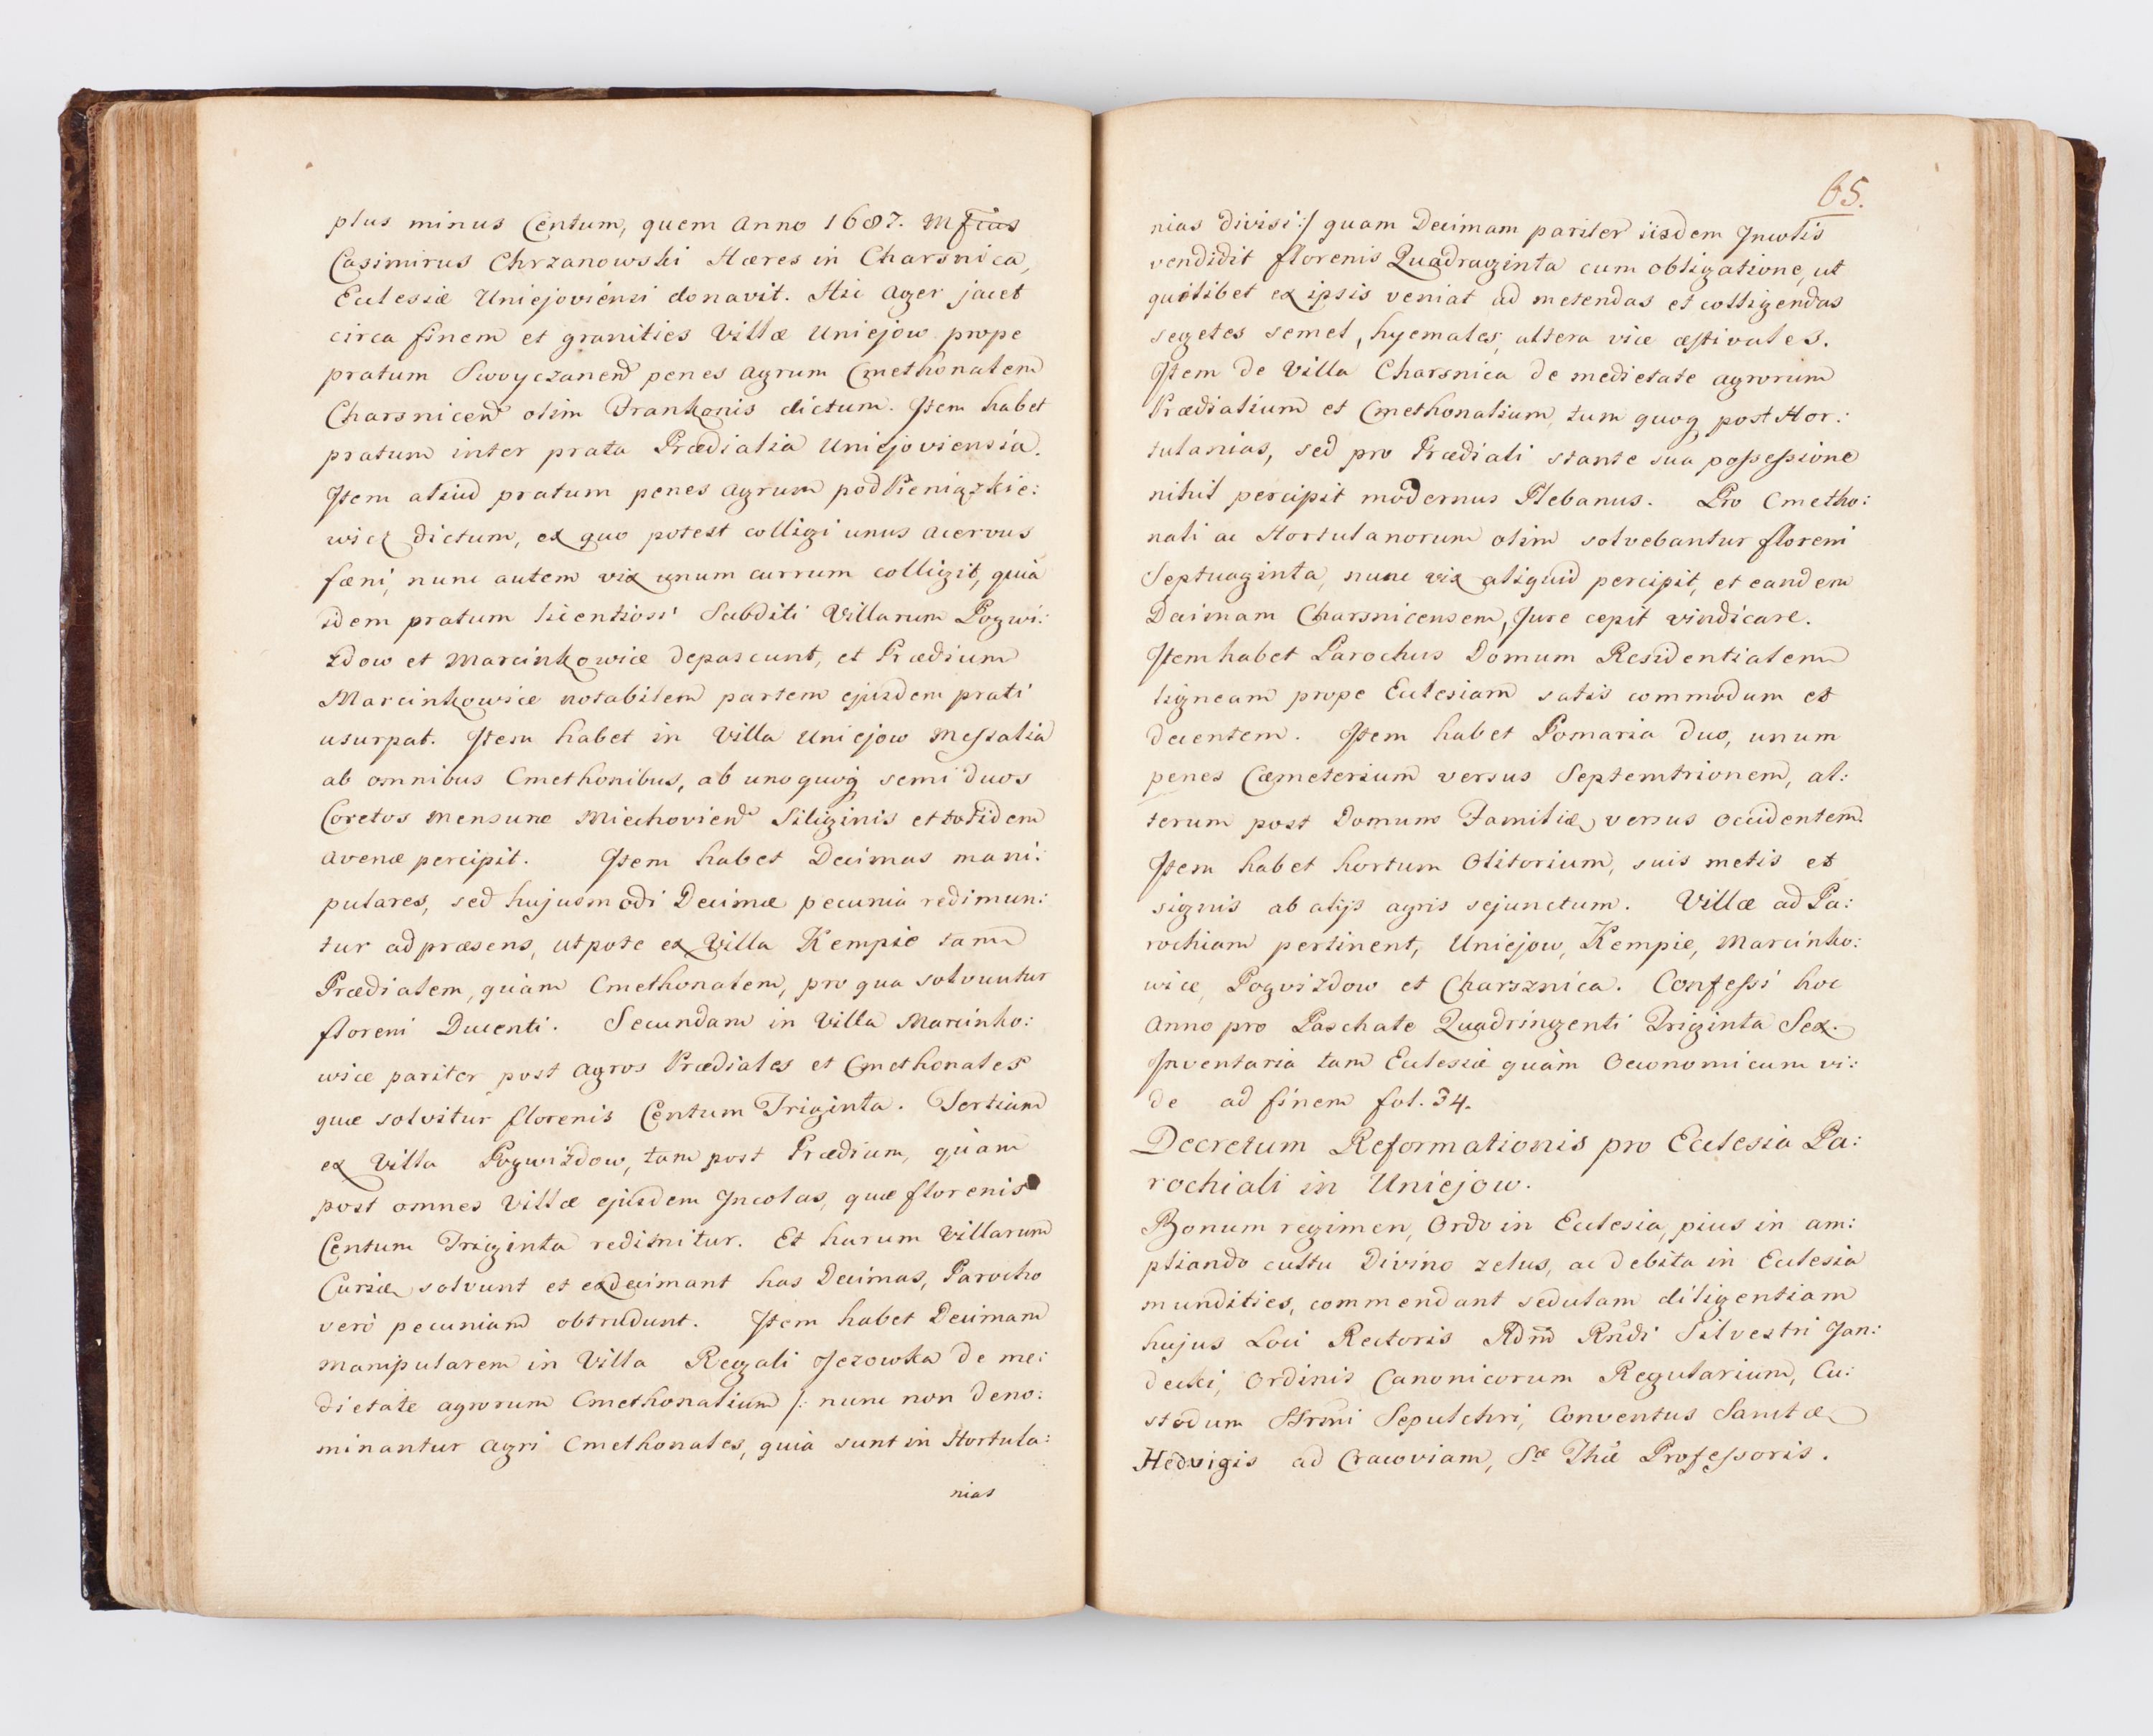 plus minus Centum, quem Anno 1687. Mfius
Casimirus Chrzanowski Hæres in Charsnica,
Eclesiæ Uniejoviensi donavit. Hic Ager jacet
circa finem et granities Villæ Uniejow prope
pratum Swoyczanen penes Agrum Cmethonalem
Charsnicen olim Frankonis dictum. Item habet
pratum inter prata Prædialia Uniejoviensia.
Item aliud pratum penes Agrum podPieniązkie:
wicz dictum, ex quo potest colligi unus Acervus
fæni, nunc autem vix unum currum colligit, quia
idem pratum licentiosi Subditi Villarum Pogwi:
zdow et Marcinkowice depascunt, et Prædium
Marcinkowice notabilem partem ejusdem prati
usurpat. Item habet in Villa Uniejow Messalia
ab omnibus Cmethonibus, ab unoquoq semi duos
Coretos Mensuræ Miechovien Siliginis et totidem
Avenæ percipit. Item habet Decimas mani:
pulares, sed hujusmodi Decimæ pecunia redimun:
tur ad præsens, utpote ex Villa Kempie tam
Prædialem, quam Cmethonalem, pro qua solvuntur
floreni Ducenti. Secundam in Villa Marcinko:
wice pariter post Agros Prædiales et Cmethonales
quæ solvitur florenis Centum Triginta. Tertiam
ex Villa Pogwizdow, tam post Prædium, quam
post omnes Villæ ejusdem Incolas, quæ florenis
Centum Triginta redimitur. Et harum Villarum
Curiæ solvunt et exdecimant has Decimas, Parocho
verò pecuniam obtrudunt. Item habet Decimam
Manipularem in Villa Regali Jezowka de me:
dietate agrorum Cmethonalium /: nunc non deno:
minantur Agri Cmethonales, quia sunt in Hortula:
nias
65.
nias divisi :/ quam Decimam pariter iisdem Incolis
vendidit florenis Quadraginta cum obligatione, ut
quilibet ex ipsis veniat ad metendas et colligendas
segetes semel, hyemales, altera vice æstivales.
Item de Villa Charsnica de medietate agrorum
Prædialium et Cmethonalium, tum quoq post Hor:
tulanias, sed pro Prædiali stante sua possessione
nihil percipit modernus Plebanus. Pro Cmetho:
nali ac Hortulanorum olim solvebantur floreni
Septuaginta, nunc vix aliquid percipit, et eandem
Decimam Charsnicensem, Jure cepit vindicare.
Item habet Parochus Domum Residentialem
ligneam prope Eclesiam satis commodum et
decentem. Item habet Pomaria duo, unum
penes Cæmeterium versus Septemtrionem, al:
terum post Domum Familiæ, versus Occidentem.
Item habet hortum Olitorium, suis metis et
signis ab alijs agris sejunctum. Villæ ad Pa:
rochiam pertinent, Uniejow, Kempie, Marcinko:
wice, Pogvizdow et Charsznica. Confessi hoc
Anno pro Paschate Quadringenti Triginta Sex.
Inventaria tam Eclesiæ quàm Oeconomicum vi:
de ad finem fol. 34.
Decretum Reformationis pro Eclesia Pa:
rochiali in Uniejow.
Bonum regimen, Ordo in Eclesia, pius in am:
pliando cultu Divino zelus, ac debita in Eclesia
mundities, commendant sedulam diligentiam
hujus Loci Rectoris Adm Rndi Silvestri Jan:
decki, Ordinis Canonicorum Regularium, Cu:
stodum Ssmi Sepulchri, Conventus Sanctæ
Hedvigis ad Cracoviam, Sæ Thæ Professoris.